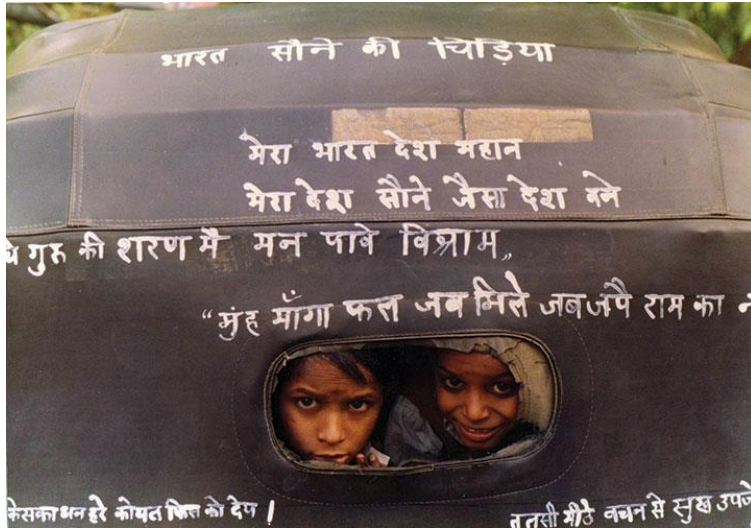 भारत सौने की चिड़िया
मेरा भारत देश महान
मेरा देश सौने जैसा देश बने
गुरु की शरण में मन पावे विश्राम,,
“मुंह माँगा फल जब मिले जब जपै राम का
केसका धन हरे कोयल किस को देय।
तुलसी मीठे वचन से सुख उपजे